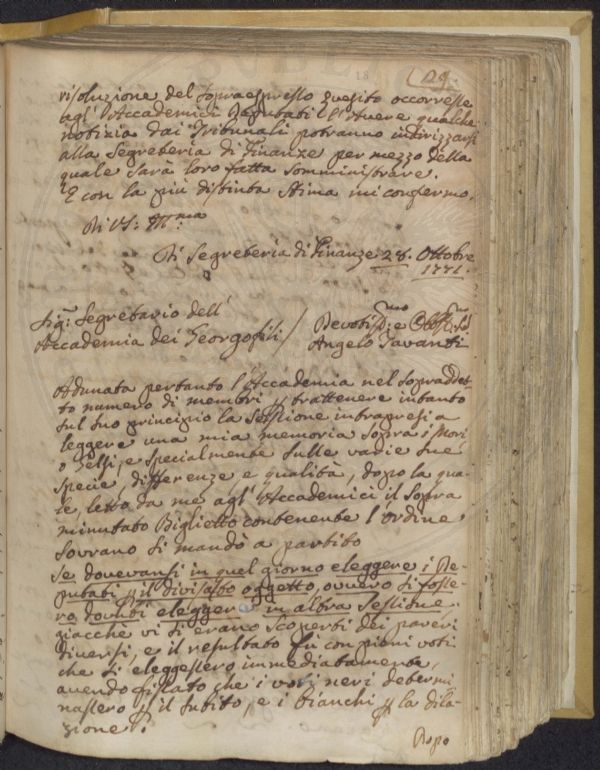 129.
risoluzione del sopraespresso quesito occorresse
agl'Accademici Deputati l'avere qualche
notizia dai Tribunali potranno indirizzarsi
alla Segreteria di Finanze per mezzo della
quale sarà loro fatta somministrare.
E con la più distinta stima mi confermo.
Di VS: Ill:ma
Di Segreteria di Finanze 28. Ottobre
1771.
Sig: Segretario dell'
Accademia dei Georgofili / Devotis:mo e Obbl:mo
Angelo Tavanti
Adunata pertanto l'Accademia nel sopraddet-
to numero di membri p trattenere intanto
sul suo principio la Sessione intrapresi a
leggere una mia memoria sopra i Mori
o Gelsi, e specialmente sulle varie sue
specie, differenze e qualità, dopo la qua-
le, letto da me agl'Accademici il sopra
minutato Biglietto contenente l'ordine
Sovrano si mandò a partito
Se dovevansi in quel giorno eleggere i De-
putati p il divisato oggetto, ovvero si fosse-
ro dovuti elegger in altra Sessione.
giacche vi si erano scoperti dei pareri
diversi, e il resultato fù con pieni voti
che si eleggessero immediatamente,
avendo fissato che i voti neri determi
nassero p il subito, e i bianchi p la dila-
zione.
Dopo